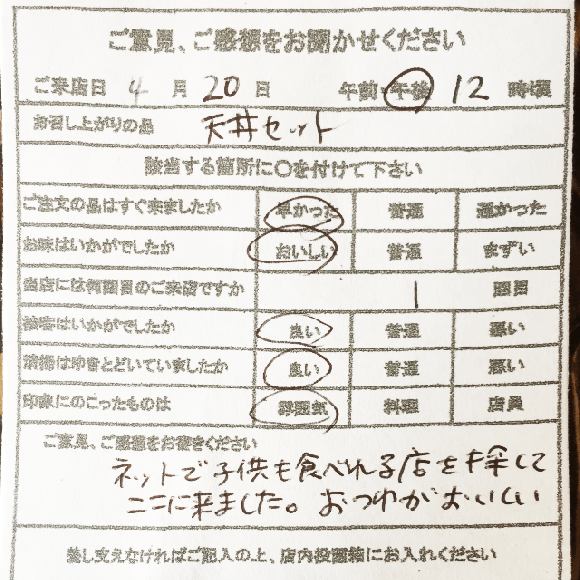 ご意見、ご感想をお聞かせください
ご来店日 4 月 20 日 午前・午後 12 時頃
お召し上がりの品 天丼セット
該当する箇所に○を付けて下さい
ご注文の品はすぐ来ましたか 早かった 普通 遅かった
お味はいかがでしたか おいしい 普通 まずい
当店には何回目のご来店ですか 1 回目
接客はいかがでしたか 良い 普通 悪い
清掃は行きとどいていましたか 良い 普通 悪い
印象にのこったものは 雰囲気 料理 店員
ご意見、ご感想をお書きください
ネットで子供も食べれる店を探して
ここに来ました。おつゆがおいしい
差し支えなければご記入の上、店内投函箱にお入れください